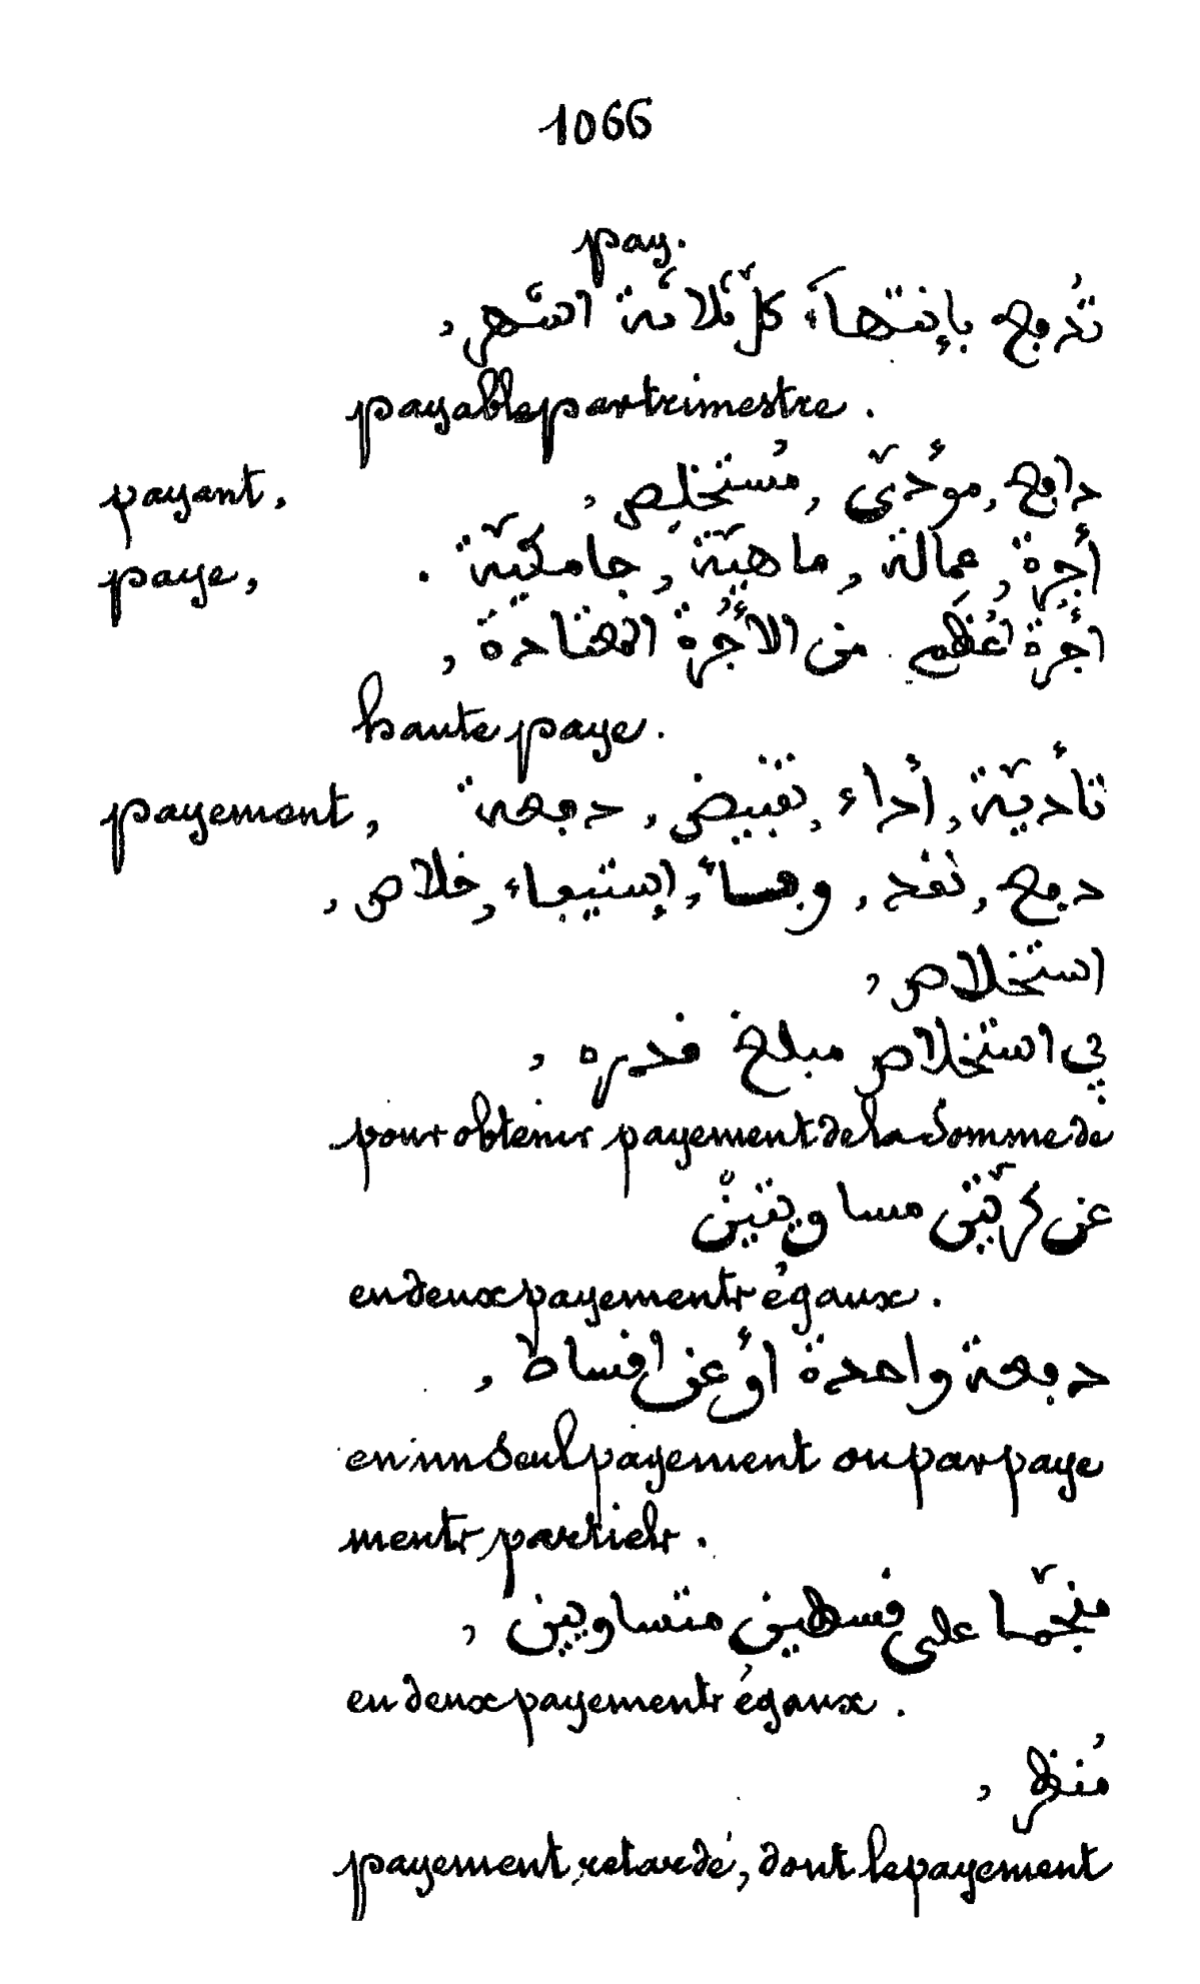 1066
pay.
تُدفع بإنتهاَء كلّ ثَلاثَة اشَهر,
payable par trimestre.
payant, دافع, مؤُدّى, مُستخلِص,
paye, أجرة, عمالة, ماهيّة, جامكيّة.
اجُرة اعُظَم من الأجُرة المعتادة,
haute paye.
payement, تأديّة, أداء, تقبيض, دفعة
دفع, نقد, وفاء, إستيفاء, خلاص,
استخلاص,
في استخلاص مبلغ قدره,
pour obtenir payement de la somme de
عن كرّتيْن مساويتين
en deux payements égaux.
دفعة واحدة اوْ عن اقساط,
en un seul payement ou par paye
ments partiels.
منجّما على قسطين متساويين,
en deux payements égaux.
مُنظر,
payement retardé, dont le payement